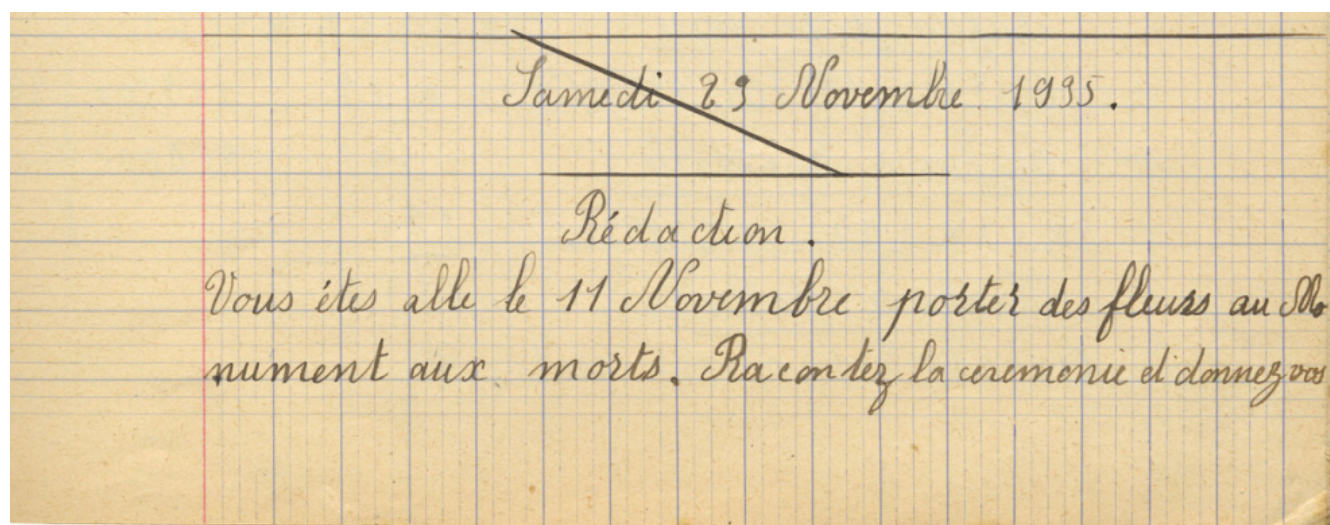 Samedi 23 Novembre 1935.
Rédaction.
Vous étes alle le 11 Novembre porter des fleurs au Mo
nument aux morts. Racontez la ceremonie et donnez vos